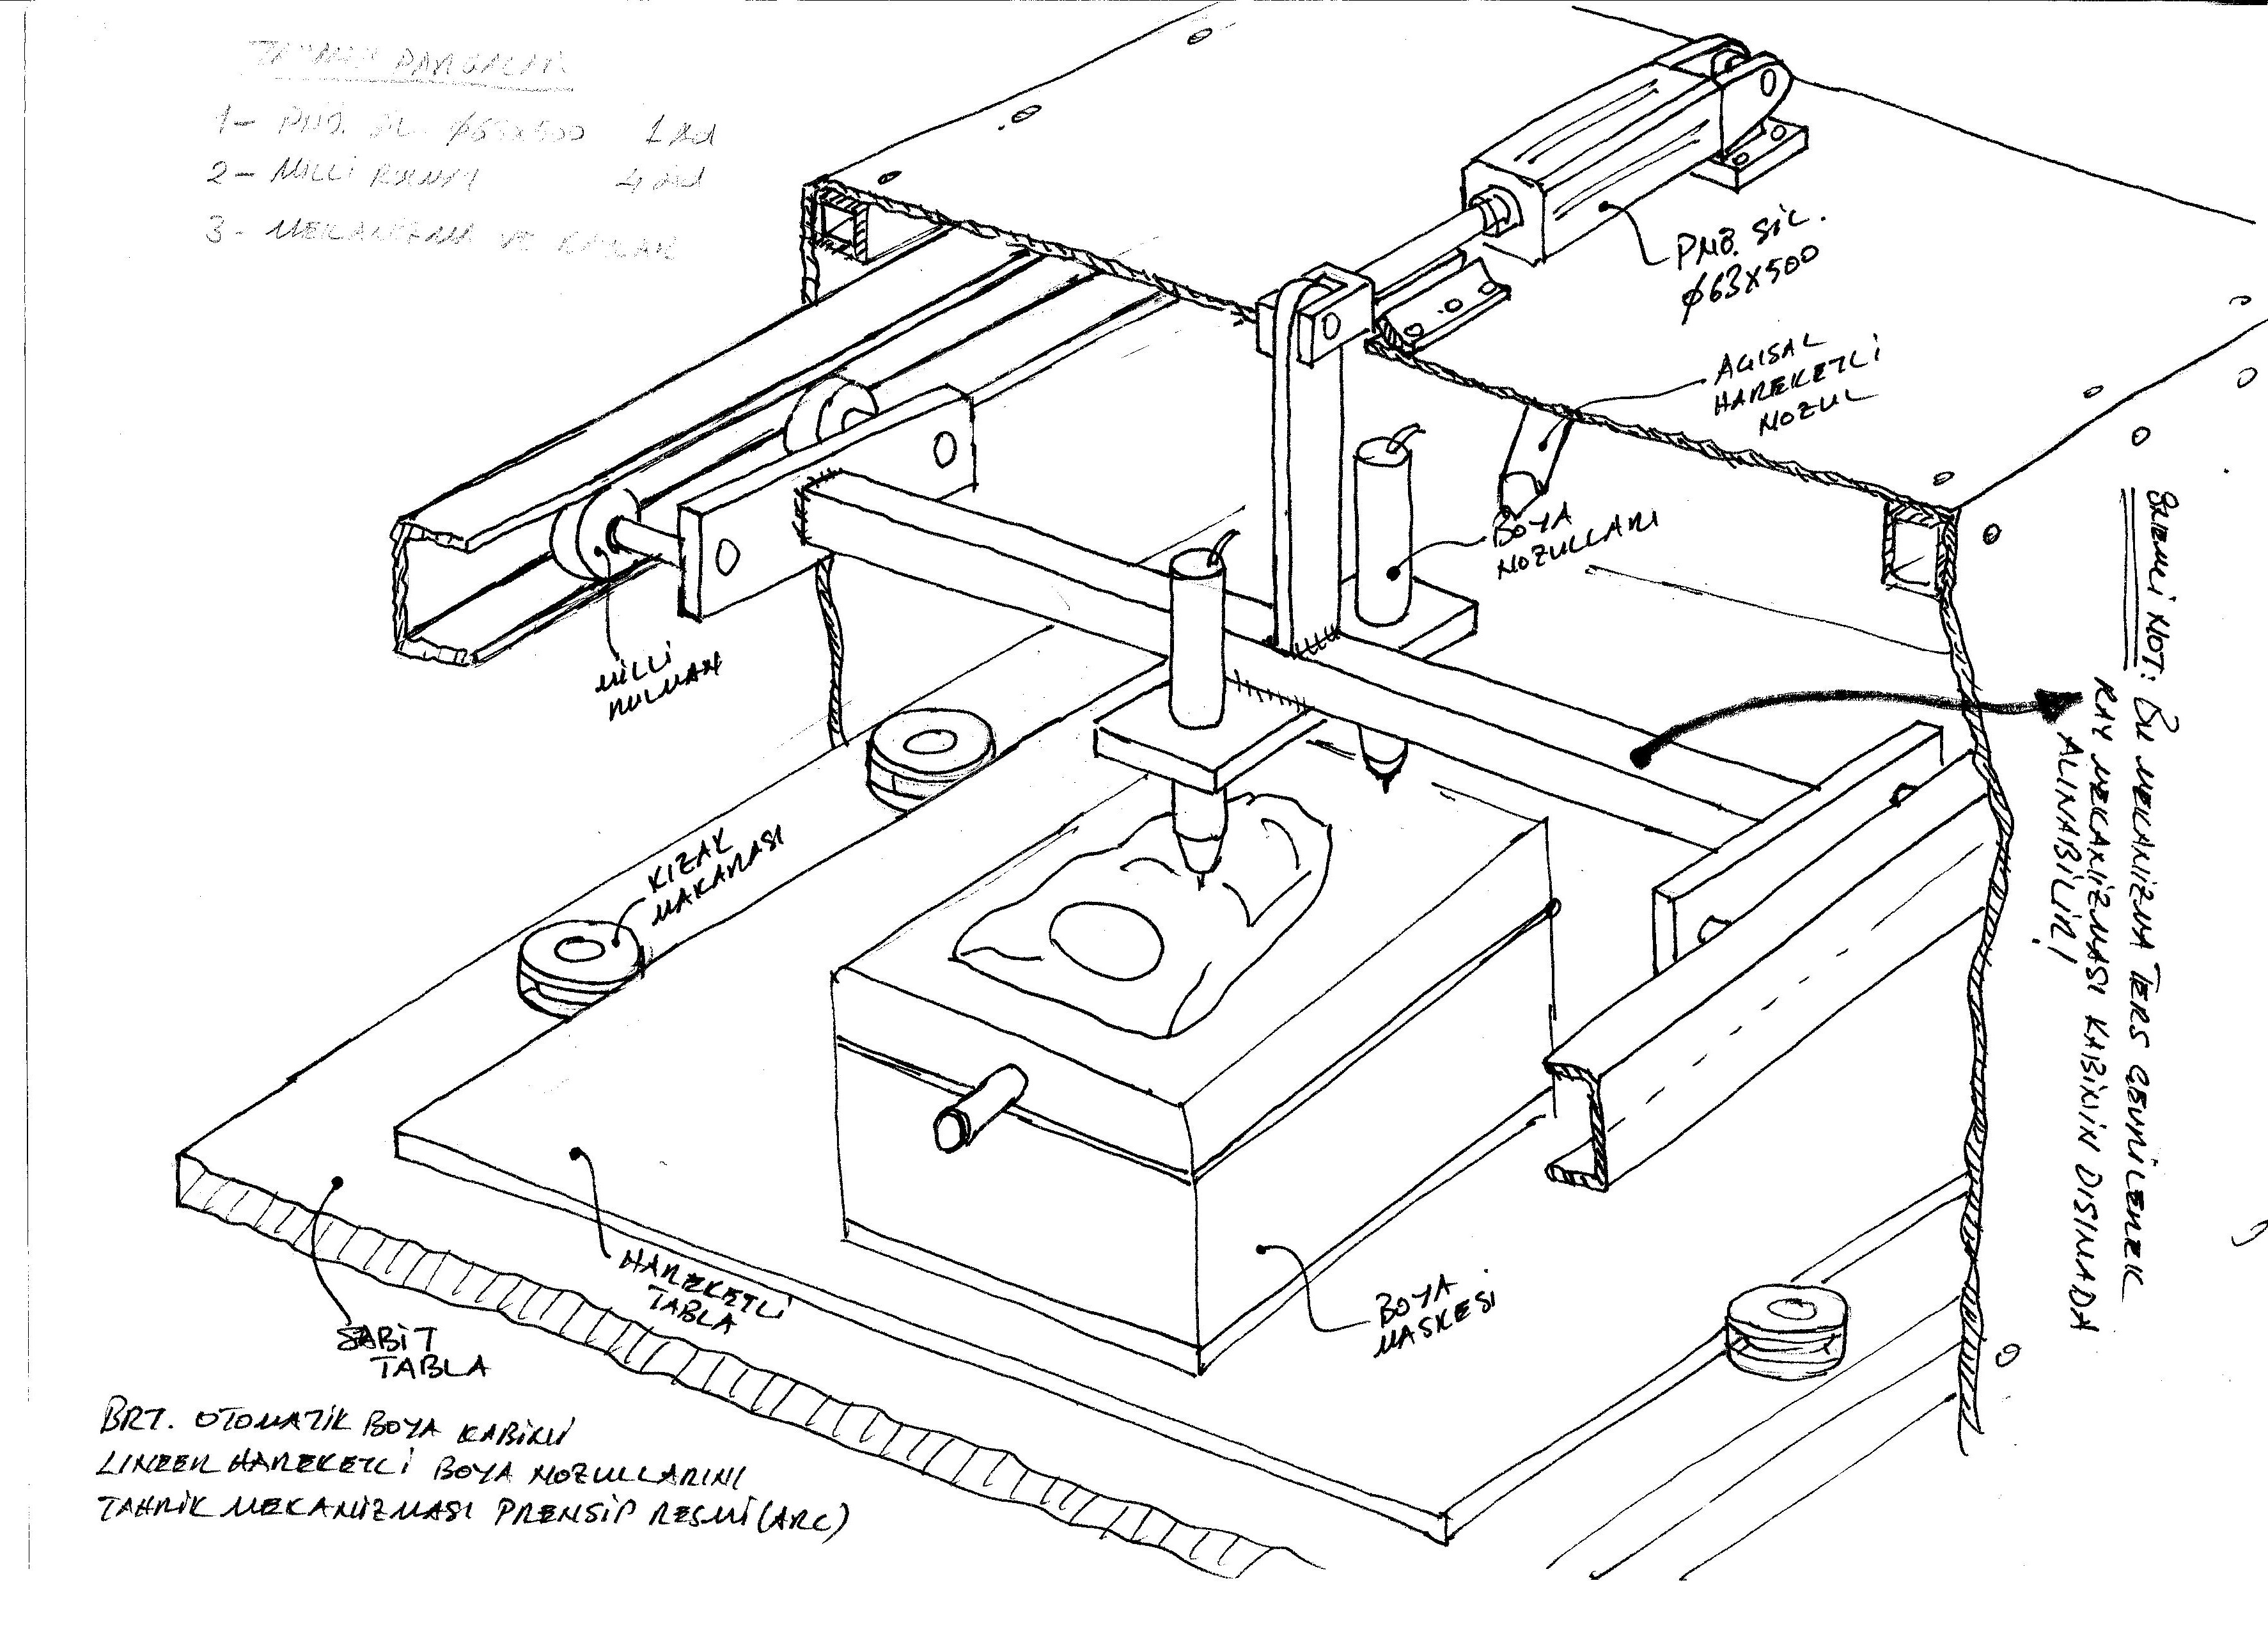 1- PNÖ. SİL. Ø63x500 1 Ad
2- MİLLİ RULMAN 4 Ad
3- MEKANİZMA VE RAYLAR
PNÖ. SİL.
Ø63x500
AÇISAL
HAREKETLİ
NOZUL
BOYA
NOZULLARI
MİLLİ
RULMAN
KIZAK
MAKARASI
BU MEKANİZMA TERS ÇEVRİLEREK
RAY MEKANİZMASI KABİNİN DIŞINADA
ALINABİLİR!
HAREKETLİ
TABLA
BOYA
MASKESİ
SABİT
TABLA
BRT. OTOMATİK BOYA KABİNİ
LİNEER HAREKETLİ BOYA NOZULLARINI
TAHRİK MEKANİZMASI PRENSİP RESMİ (ARC)